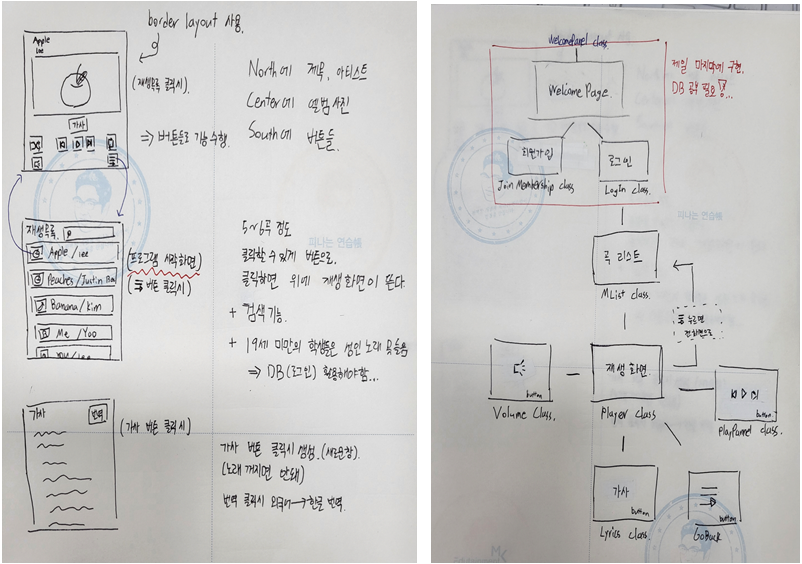 border layout 사용.
Apple
Lee
(재생목록 클릭시).
North에 제목, 아티스트
Center에 앨범사진
South에 버튼들.
가사
⇒ 버튼들로 기능 수행.
재생목록.
Apple / Lee
Peaches/Justin Bie
Banana/Kim
Me / Yoo
(프로그램 시작화면)
(버튼 클릭시)
5~6곡 정도
클릭할 수 있게 버튼으로.
클릭하면 위에 재생화면이 뜬다
+ 검색 기능.
+ 19세 미만의 학생들은 성인 노래 못들음
⇒ DB(로그인) 활용해야함...
가사
번역
(가사 버튼 클릭시)
가사 버튼 클릭시 생성. (새로운창).
(노래 꺼지면 안돼)
번역 클릭시 외국어→한글 번역.
피나는 연습해
WelcomePanel class.
WelcomePage.
제일 마지막에 구현.
DB 공부 필요
회원가입
Join Membership class
로그인
Login class.
피나는 연습해
곡 리스트
MList class.
누르면
전 화면으로
button
Volume Class.
재생화면.
button
Player class
button
PlayPannel class.
가사
button
Lyrics class.
button
GoBack